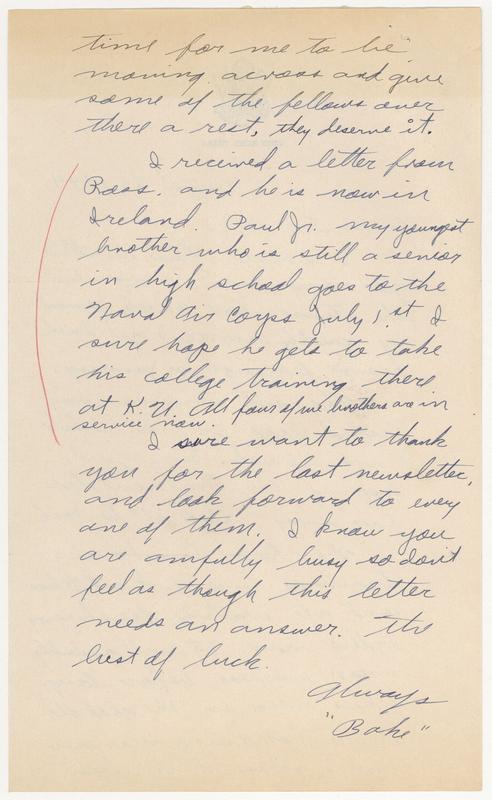 time for me to be
moving across and give
some of the fellows over
there a rest, they deserve it.
I received a letter from
Ross, and he is now in
Ireland. Paul Jr. my youngest
brother who is still a senior
in high school goes to the
Naval Air Corps July 1.st I
sure hope he gets to take
his college training there
at K. U. All four of we brothers are in
service now.
I sure want to thank
you for the last newsletter,
and look forward to every
one of them. I know you
are awfully busy so don't
feel as though this letter
needs an answer. The
best of luck.
Always
"Bake"